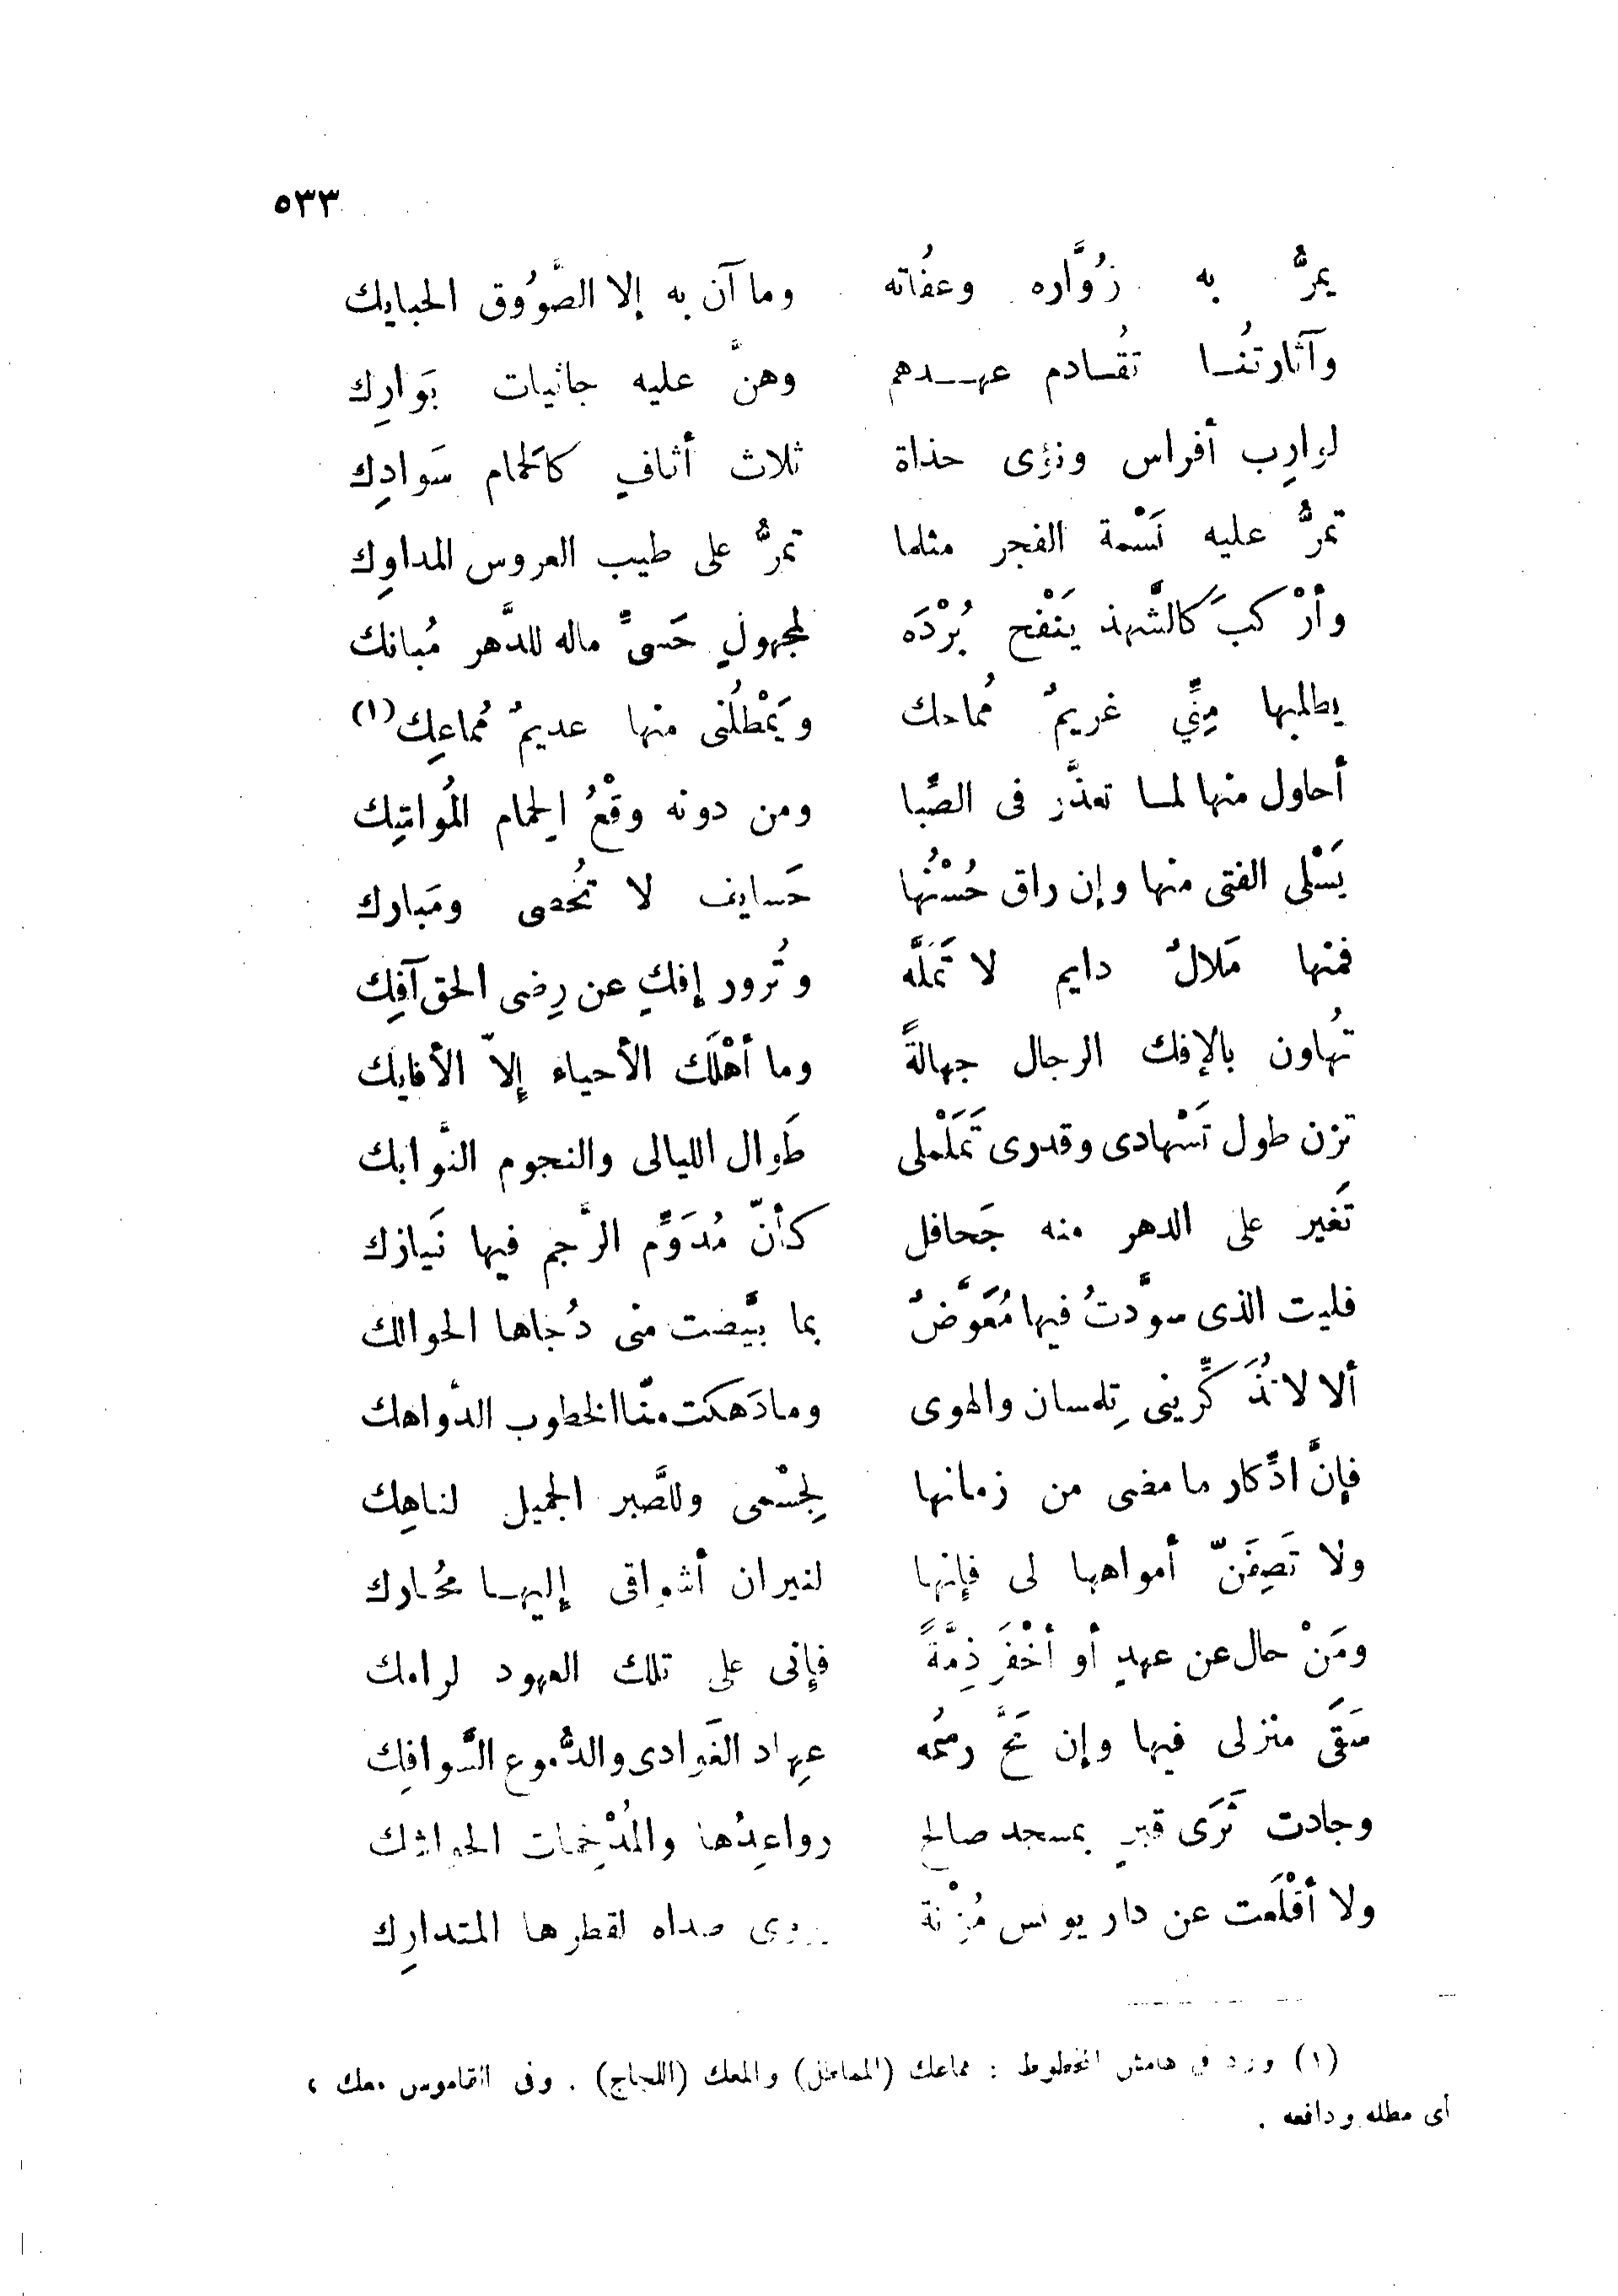 ٥٣٣
يمرُّ به زُوَّاره وعفُاته وما آن به إلا الضَّوُوق الحبايك
وآثارتنُا تقُادم عهدهم وهنَّ عليه جاثيات بَوارِك
لوارِب أفراس ونؤى حذاة ثلاث أثافىٍ كالحَمام سَوادِك
تمرُّ عليه نَسْمة الفجر مثلما تمرُّ على طيب العروس المداوِك
وأرْكبَ كالشَّهذ يَنْفح بُرْدَه لمجهولٍ حَسىًّ ماله للدَّهر مُبانك
يطلبها مِنِّي غريمٌ مُماحك ويَمْطُلنى منها عديمٌ مُماعِك(١)
أحاول منها لمسا تعذَّر فى الصِّبا ومن دونه وقْعُ الحِمام المُواتِيك
يَسْلى الفتى منها وإن راق حُسْنُها حَسايف لا تُحصى ومَبارك
فمنها مَلالٌ دايم لا تَملَّه وتُرور إفكٍ عن رِضى الحق آفِك
تهُاون بالإفك الرجال جهالةً وما أهْلَك الأحياء إلاّ الأفايك
تزن طول تَسْهادى وقدرى تَمَلْملى طَوال الليالى والنجوم النَّوابك
تَغير على الدهر منه جَحافل كأنّ مُدَوَّم الرَّجم فيها نَيازك
فليت الذى سوَّدتُ فيها مُعَوَّضٌ بما بيَّضت منى دُجاها الحوالك
ألا لا تُذَكِّرينى تِلمسان والهوى وما دَهكت منّا الخطوب الدَّواهك
فإنَّ ادِّكار ما مضى من زمانها لِجسْمى وللصَّبر الجميل لناهِك
ولا تَصِفَنّ أمواهها لى فإنها لنيران أشواقى إليها محُارك
ومَنْ حال عن عهدٍ أو أخْفَر ذِمَّةً فإنى على تلك العهود لرامك
سَقَى منزلى فيها وإن مَحَّ رسمُه عِهاد الغَوادى والدُّموع السَّوافِك
وجادت ثَرَى قبرٍ بمسجد صالحٍ رواعِدُها والمُدْجِمات الحواشك
ولا أقْلَعت عن دار يونس مُزْنة يروى صداه لقطرها المتدارِك
(١) ورد فى هامش المخطوط : مماعك (المماطل) والمعك (اللجاج) . وفى القاموس معك ،
أى مطله ودافعه .